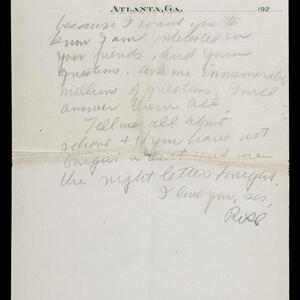 ATLANTA, GA. 192
because I want you to
know I am interested in
your friends, and your
questions. Ask me innumerable
millions of questions. I will
answer them all.
Tell me all about
school & if you have not
me
the night letter tonight.
I love you, sis,
Rose